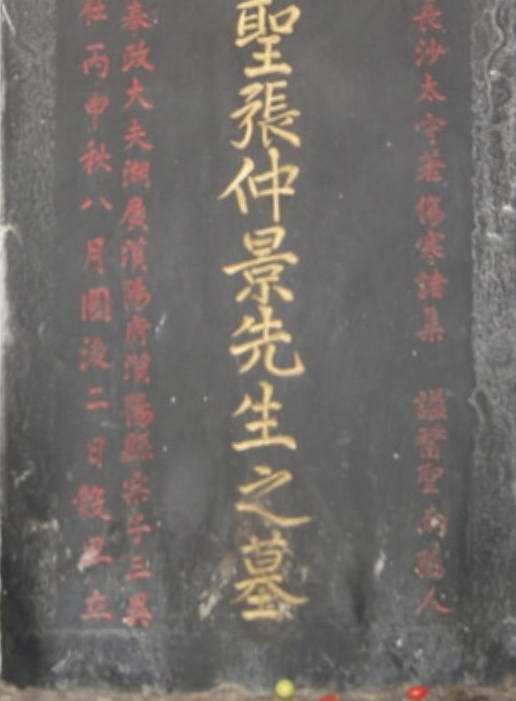 長沙太守著傷寒諸集 諡醫聖南陽人
聖張仲景先生之墓
奉政大夫湖廣漢陽府漢陽縣宗子三異
丙申秋八月圓後二日毂旦立